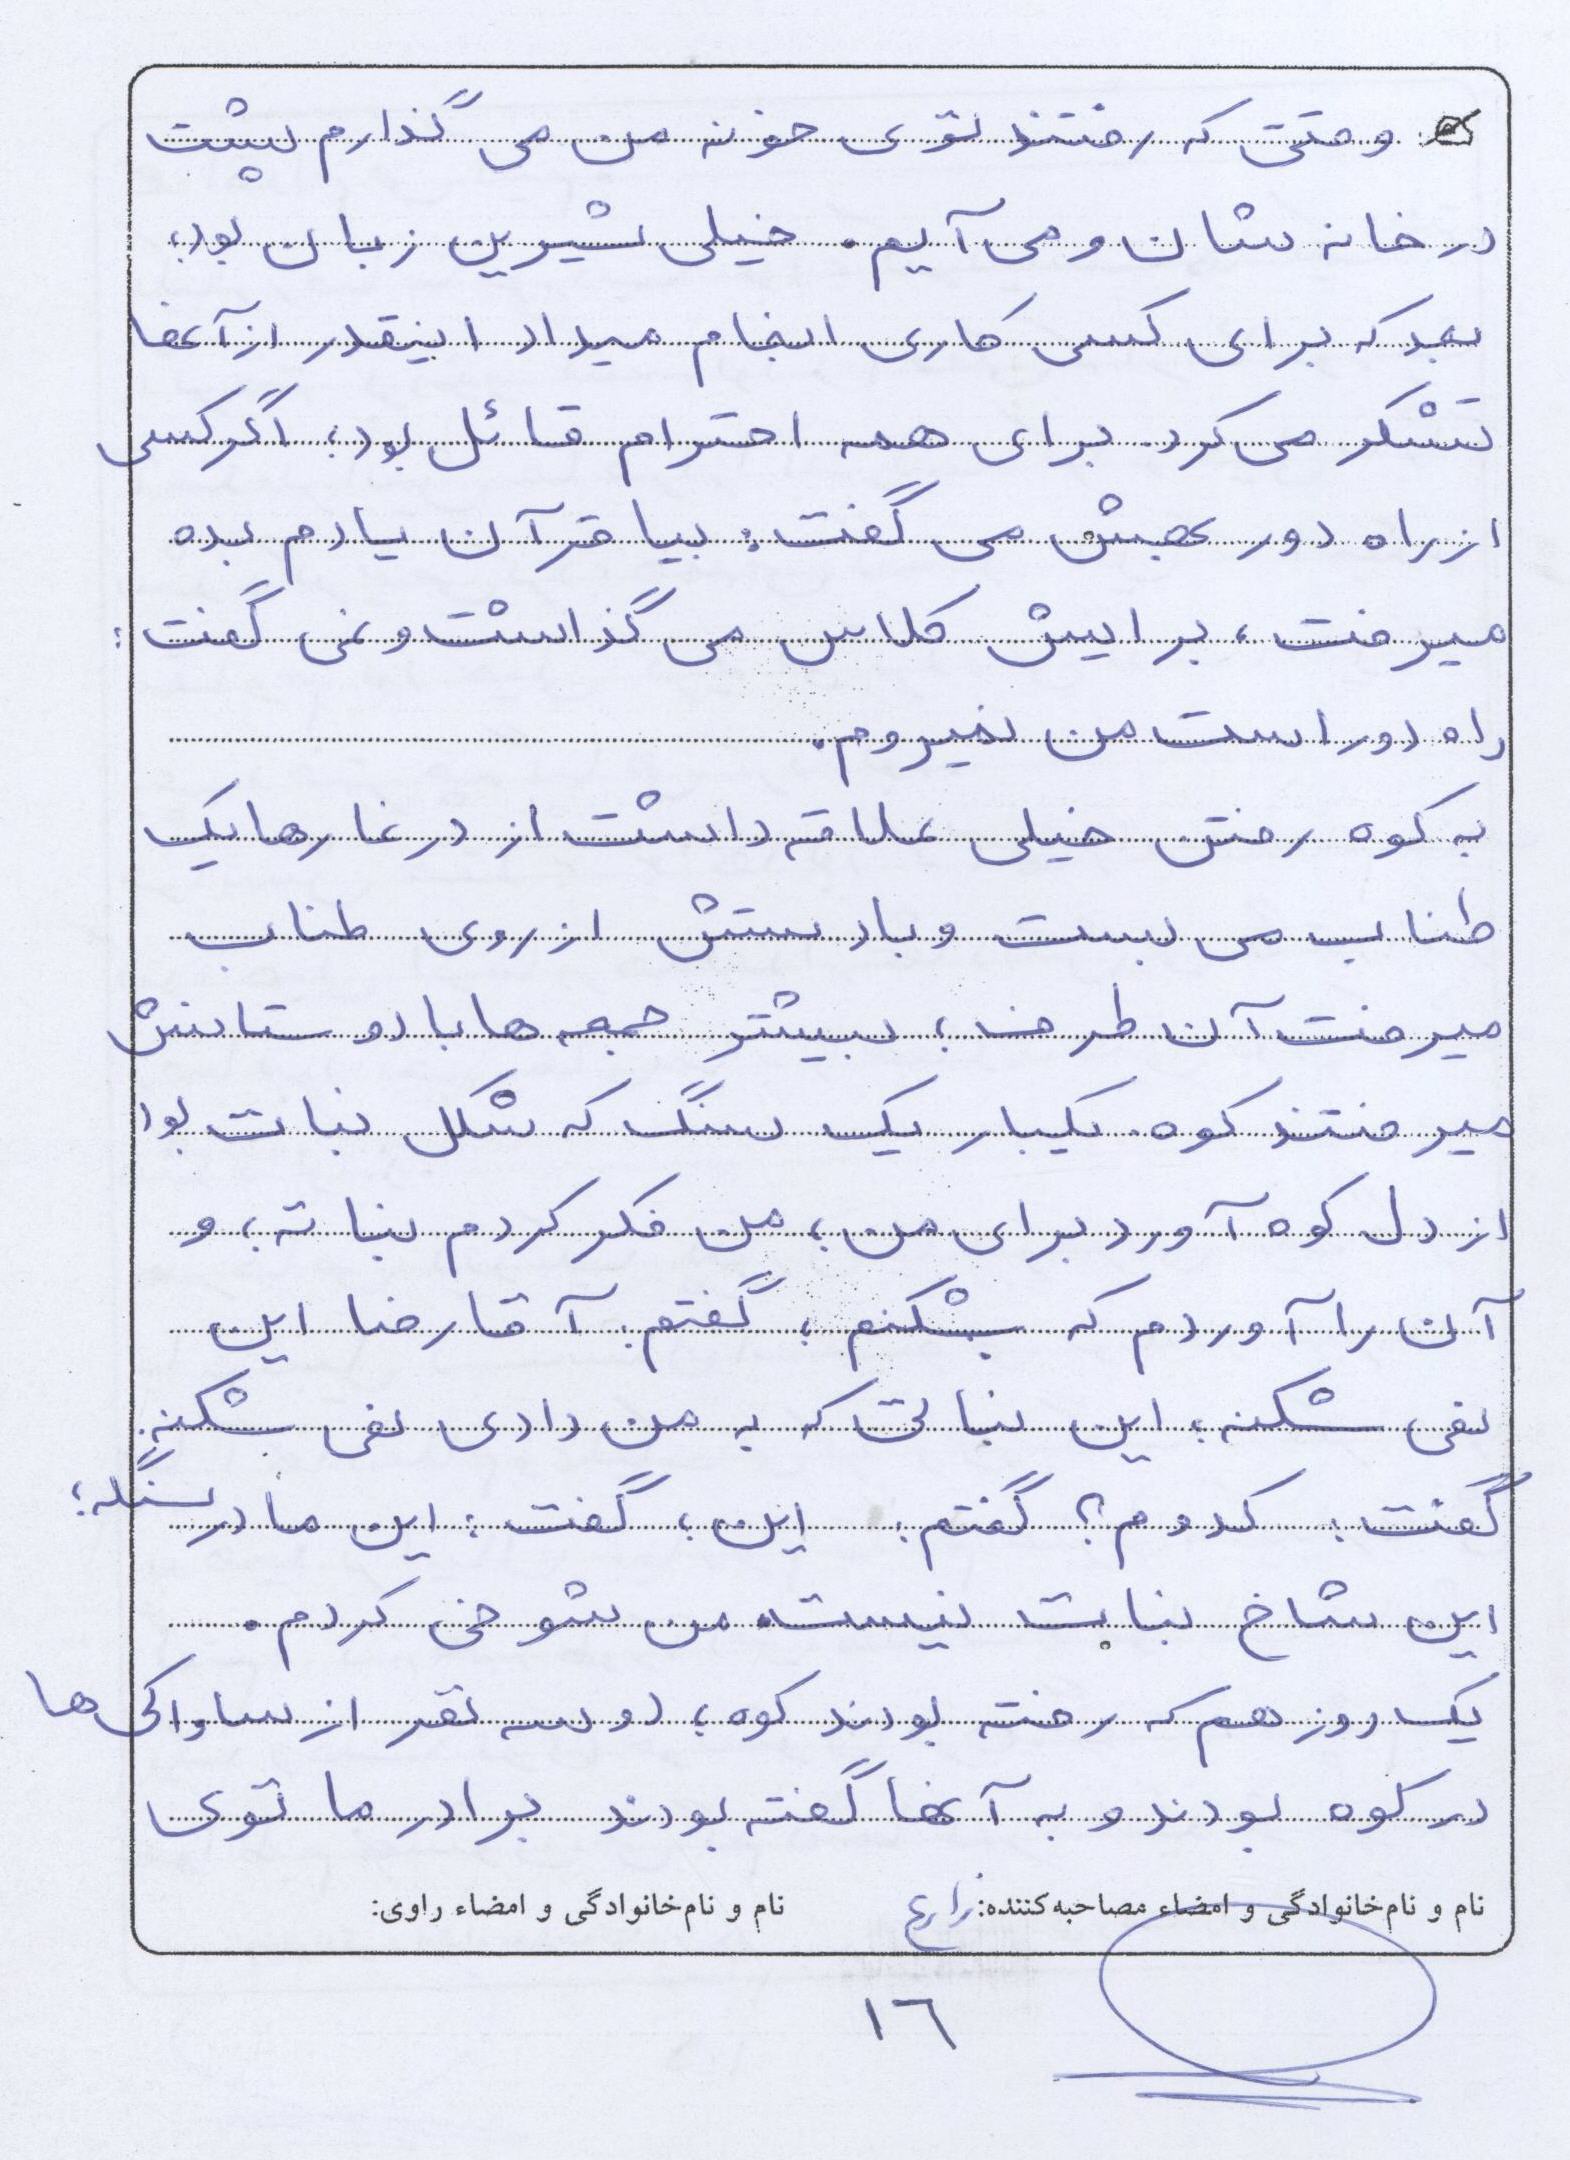 وقتی که رفتند توی خونه من می گذارم پشت
در خانه شان و می آیم. خیلی شیرین زبان بود،
بعد که برای کسی کاری انجام میداد اینقدر از آنها
تشکر می کرد. برای همه احترام قائل بود؛ اگر کسی
از راه دور بهش می گفت: بیا قرآن یادم بده
میرفت، برایش کلاس می گذاشت و نمی گفت:
راه دور است من نمیروم.
به کوه رفتن خیلی علاقه داشت از در غارها یک
طناب می بست و با دستش از روی طناب
میرفت آن طرف؛ بیشتر جمعه ها با دوستانش
میرفتند کوه. یکبار یک سنگ که شکل نبات بود
از دل کوه آورد برای من؛ من فکر کردم نباته؛ و
آن را آوردم که بشکنم؛ گفتم: آقا رضا این
نمی شکنه؛ این نباتی که به من دادی نمی شکنه.
گفت: کدوم؟ گفتم: این؛ گفت: این مادر سنگه؛
این شاخ نبات نیست. من شوخی کردم.
یک روز هم که رفته بودند کوه؛ دو سه نفر از ساواکی ها
در کوه بودند و به آنها گفته بودند برادر ما توی
نام و نام‌خانوادگی و امضاء مصاحبه‌کننده: زارع
نام و نام‌خانوادگی و امضاء راوی:
١٦